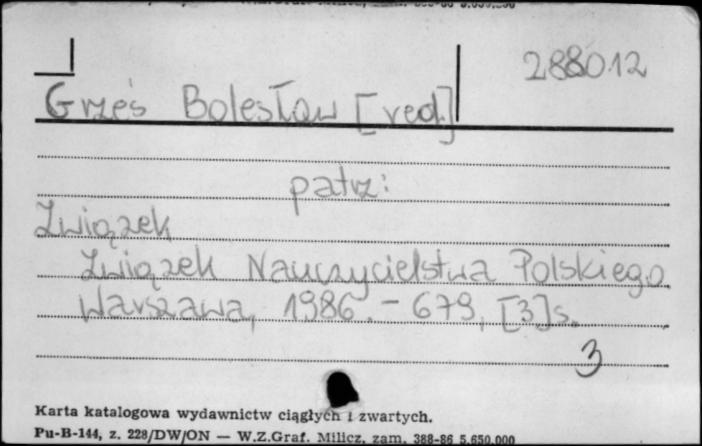 288012
Grześ Bolesław [red.]
patrz:
Związek
Związek Nauczycielstwa Polskiego.
Warszawa, 1986. - 679, [3] s.
3
Karta katalogowa wydawnictw ciągłych i zwartych.
Pu-B-144, z. 228/DW/ON — W.Z.Graf. Milicz, zam. 388-86 5.650.000